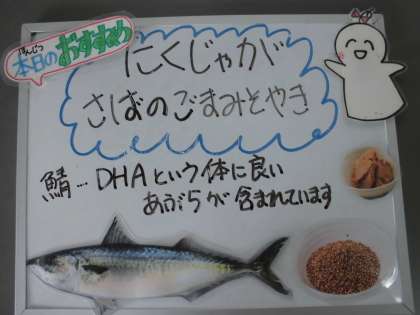 本日のおすすめ
にくじゃが
さばのごまみそやき
鯖…DHAという体に良い
あぶらが含まれています